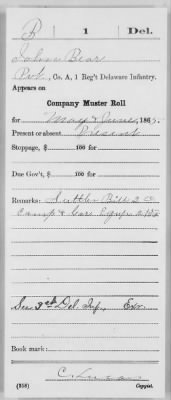 R | 1 | Del.
John Bear
Pvt., Co. A, 1 Reg't Delaware Infantry.
Appears on
Company Muster Roll
for May & June, 1865.
Present or absent Present
Stoppage, $ 100 for
Due Gov't, $ 100 for
Remarks: Suttler Bill 2
Camp & Gar Equip
See 3rd Del. Inf.
Book mark:
(358) Copyist.